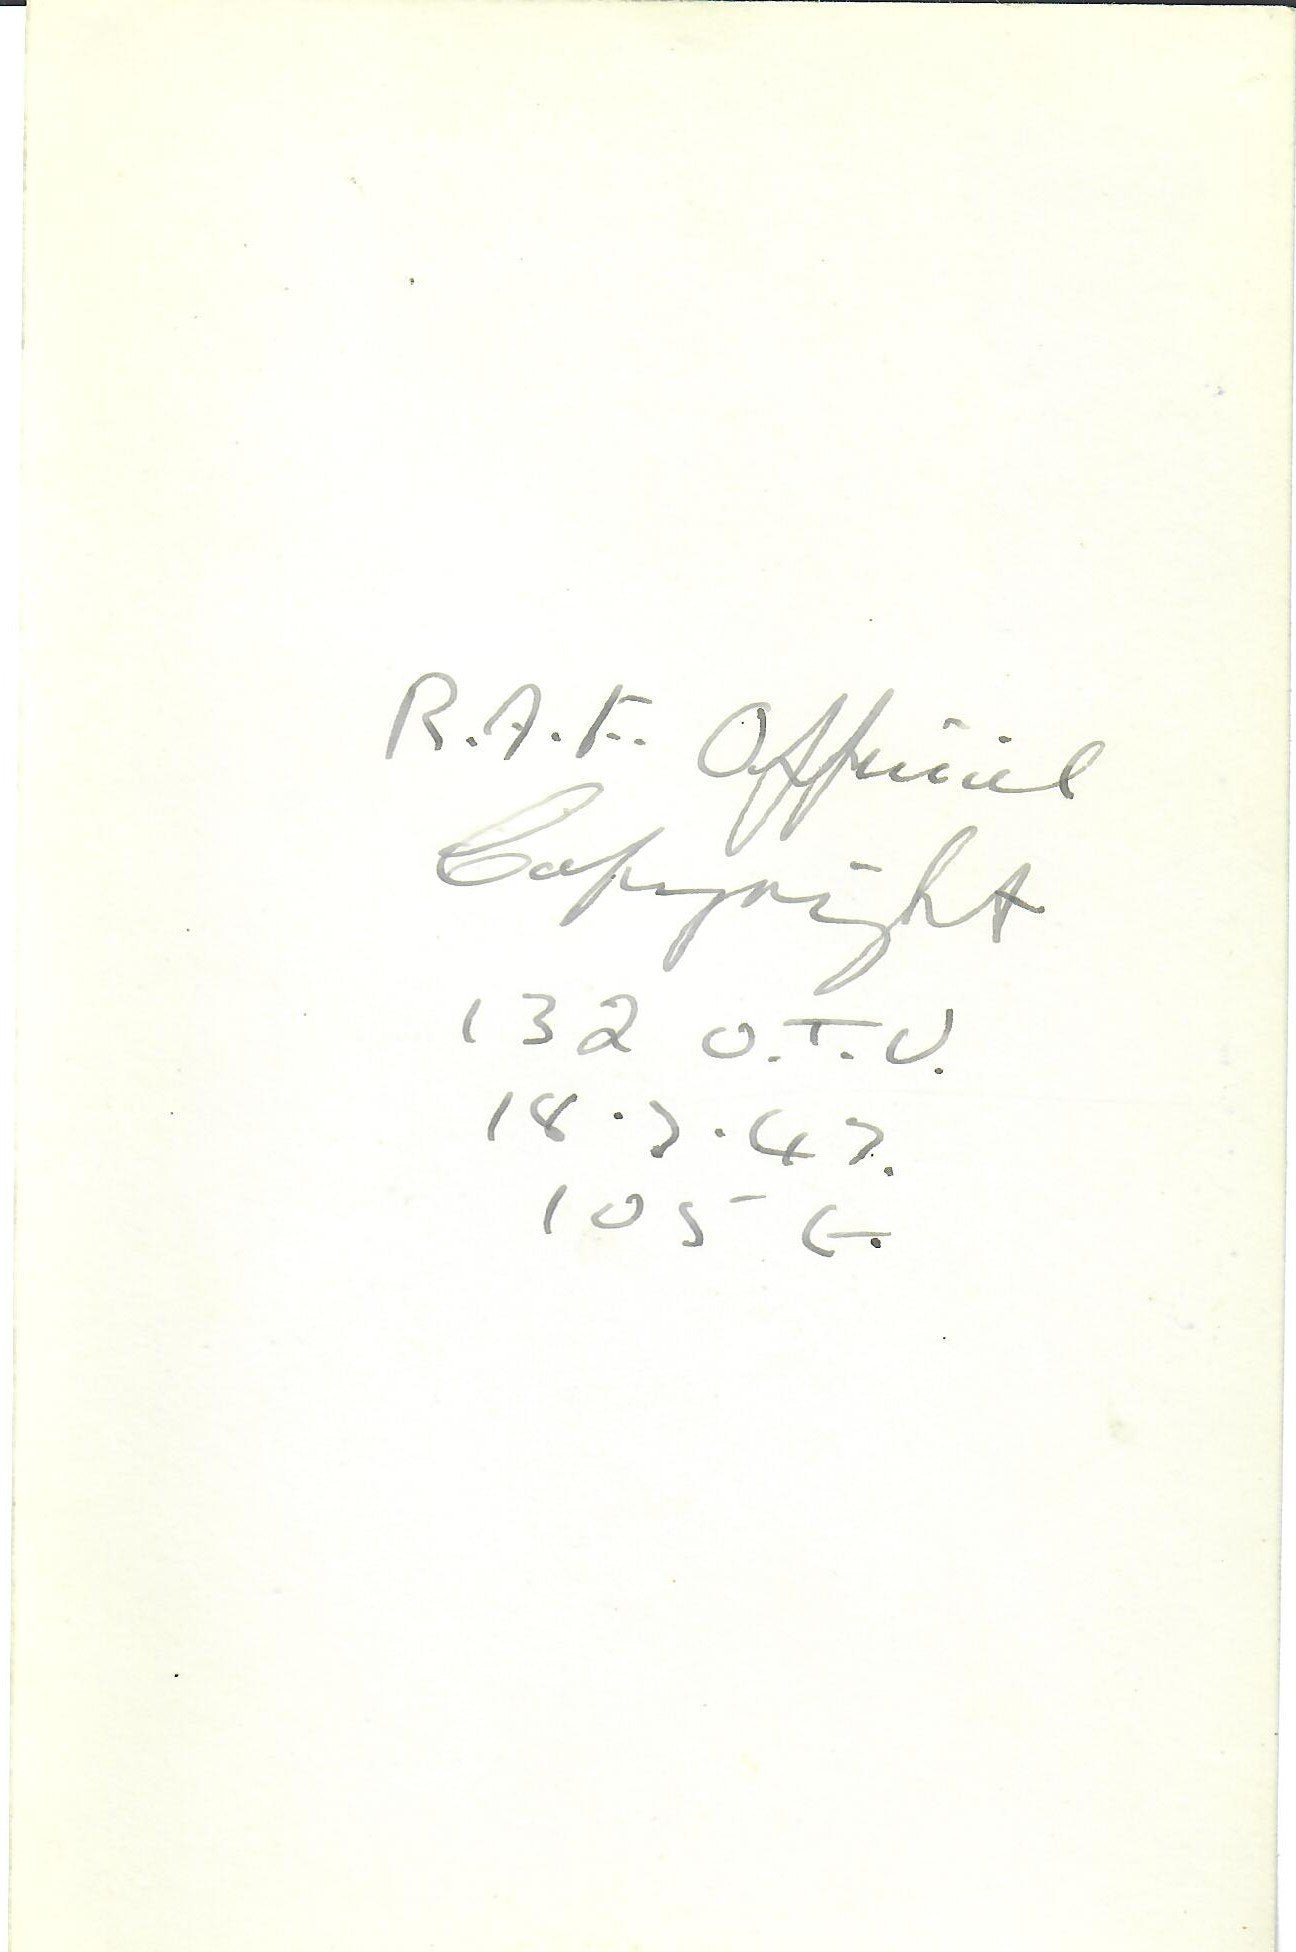 R.A.F. Official
Copyright
132 O.T.U.
18.7.47.
105 G.